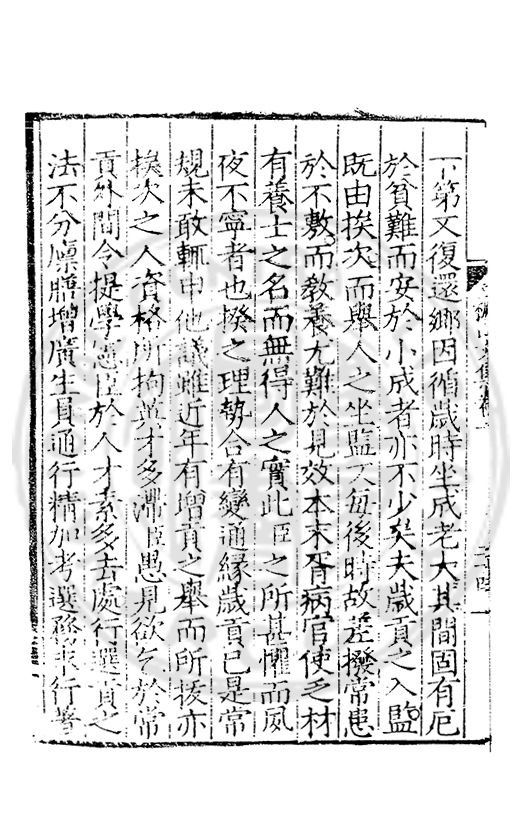 下第又復還鄉因循歲時坐成老大其間固有厄
於貧難而安於小成者亦不少矣夫歲貢之入監
既由挨次而舉人之坐監又每後時故差撥常患
於不敷而敎養尤難於見效本末胥病官使乏材
有養士之名而無得人之實此臣之所甚懼而夙
夜不寧者也揆之理勢合有變通緣歲貢已是常
規未敢輒申他議雖近年有增貢之舉而所拔亦
挨次之人資格所拘英才多滯臣愚見欲乞於常
貢外間令提學憲臣於人才素多去處行選貢之
法不分廩膳增廣生員通行精加考選務求行著